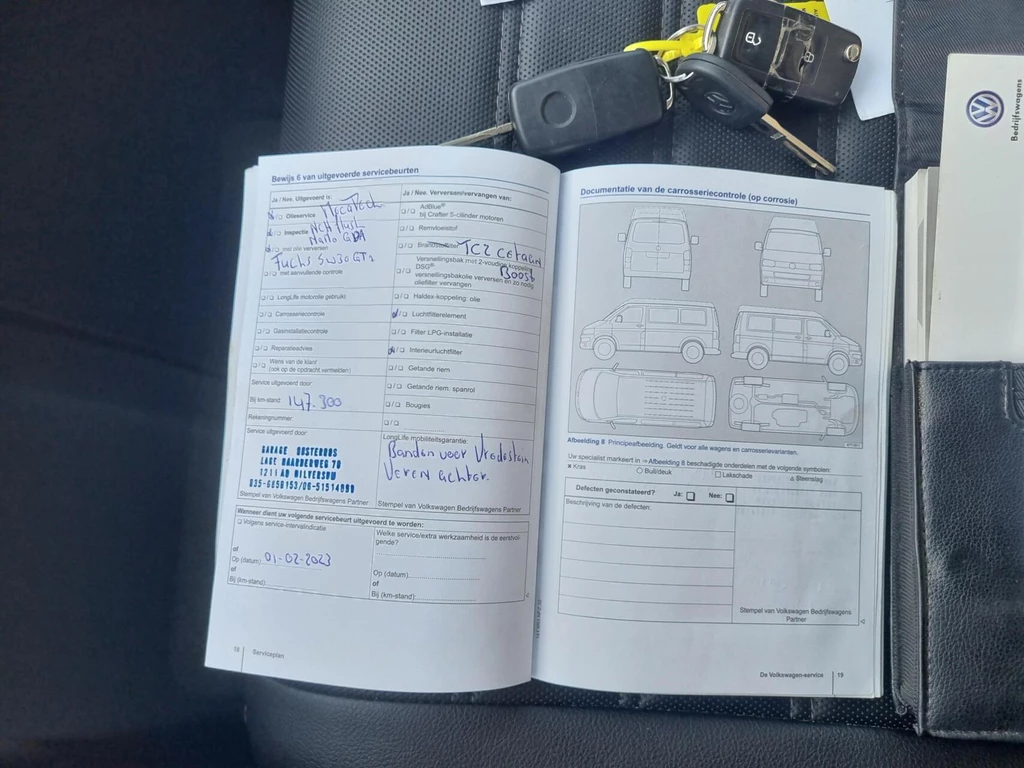 Bewijs 6 van uitgevoerde servicebeurten
Ja / Nee. Uitgevoerd is:
Olieservice
Inspectie NCH flush
Nano GDA
met olie verversen
Fuchs 5W30 GT1
met aanvullende controle
LongLife motorolie gebruikt
Carrosseriecontrole
Gasinstallatiecontrole
Reparatieadvies
Wens van de klant
(ook op de opdracht vermelden)
Service uitgevoerd door:
Bij km-stand: 147.300
Rekeningnummer:
Service uitgevoerd door:
GARAGE OOSTERBOS
LAGE NAARDERWEG 70
1211 AD HILVERSUM
Stempel van Volkswagen Bedrijfswagens Partner
Ja / Nee. Verversen/vervangen van:
AdBlue®
bij Crafter 5-cilinder motoren
Remvloeistof
Brandstoffilter TCZ cetaan
Boost
Versnellingsbak met 2-voudige koppeling
DSG®:
versnellingsbakolie verversen en zo nodig
oliefilter vervangen
Haldex-koppeling: olie
Luchtfilterelement
Filter LPG-installatie
Interieurluchtfilter
Getande riem
Getande riem: spanrol
Bougies
LongLife mobiliteitsgarantie
Banden voor Vredestein
Veren achter.
Stempel van Volkswagen Bedrijfswagens Partner
Wanneer dient uw volgende servicebeurt uitgevoerd te worden:
Volgens service-intervalindicatie
of
Op (datum): 01-02-2023
of
Bij (km-stand):
Welke service/extra werkzaamheid is de eerstvol-
gende?
Op (datum):
of
Bij (km-stand):
18 Serviceplan
Documentatie van de carrosseriecontrole (op corrosie)
Afbeelding 8 Principeafbeelding. Geldt voor alle wagens en carrosserievarianten.
Uw specialist markeert in ⇒ Afbeelding 8 beschadigde onderdelen met de volgende symbolen:
× Kras ○ Buil/deuk □ Lakschade △ Steenslag
Defecten geconstateerd? Ja: Nee:
Beschrijving van de defecten:
Stempel van Volkswagen Bedrijfswagens
Partner
De Volkswagen-service 19
Bedrijfswagens